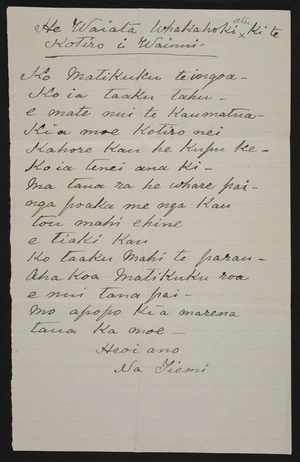 He Waiata Whakahoki atu ki te
Kotiro i Wainui -
Ko Matikuku te ingoa -
Ko ia taaku tahu -
e mate nui te Kaumatua -
Kia moe Kotiro nei
Kahore Kau he Kupu ke -
Ko ia tenei ana Ki -
Ma taua ra he whare pai -
nga poaka me nga Kau
tou mahi ehine
e tiaki Kau
Ko taaku Mahi te parau -
Aha Koa Matikuku roa
e nui tana pai -
Mo apopo Kia marena
taua Ka moe -
Heoi ano
Na Tiemi